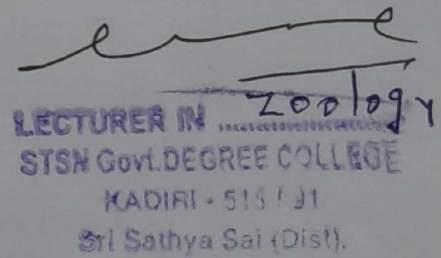 LECTURER IN ........ Zoology
STSN Govt. DEGREE COLLEGE
KADIRI -
Sri Sathya Sai (Dist).